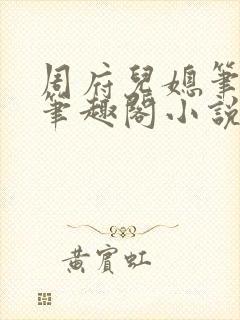 周府兒媳筆
筆趣閣小說
黃賓虹